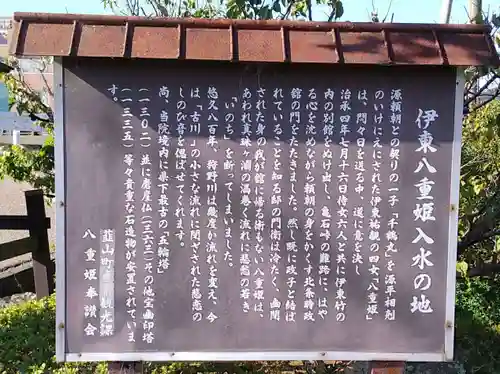 伊東八重姫入水の地
源頼朝との契りの一子「千鶴丸」を源平相剋
のいけにえにされた伊東祐親の四女「八重姫」
は、悶々の日を送る中、遂に意を決し
治承四年七月十六日侍女六人と共に伊東竹の
内の別館をぬけ出し、亀石峠の難路に、はや
る心を沈めながら頼朝の身をかくす北条時政
館の門をたたきました。然し既に政子と結ば
れていることを知る邸の門衛は冷たく、幽閉
された身の我が館に帰る術もない八重姫は、
あわれ真珠ヶ淵の渦巻く流れに悲愁の若き
「いのち」を断ってしまいました。
悠久八百年、狩野川は幾度か流れを変え、今
は「古川」の小さな流れに閉ざされた悲恋の
しのび音を偲ばせてくれます。
尚、当院境内に県下最古の五輪塔
(一三〇二)並に磨崖仏(一三六三)その他宝印塔
(一三三五)等々貴重な石造物が安置されていま
す。
韮山町 観光課
八重姫奉讃会